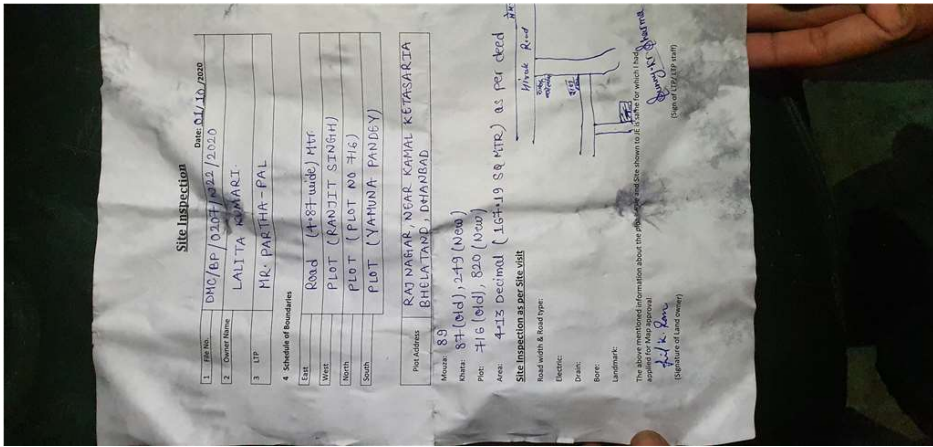 Site Inspection
Date: 01/10/2020
1 File No. DMC/BP/0207/W22/2020
2 Owner Name LALITA KUMARI.
3 LTP MR. PARTHA-PAL
4 Schedule of Boundaries
East Road (4.87 wide) Mtr
West PLOT (RANJIT SINGH)
North PLOT (PLOT NO 716)
South PLOT (YAMUNA PANDEY)
Plot Address RAJ NAGAR, NEAR KAMAL KETASARIA
BHELATAND, DHANBAD
Mouza: 89
Khata: 87 (old), 249 (New)
Plot: 716 (old), 820 (New)
Area: 4.13 Decimal (167.19 SQ MTR) as per deed
Site Inspection as per Site visit
Road width & Road type:
Electric:
Drain:
Bore:
Landmark:
Hirak Road
The above mentioned information about the and Site shown to JE is same for which I had
applied for Map approval.
(Signature of Land owner)
Sharma
(Sign of LTP/ LTP staff)